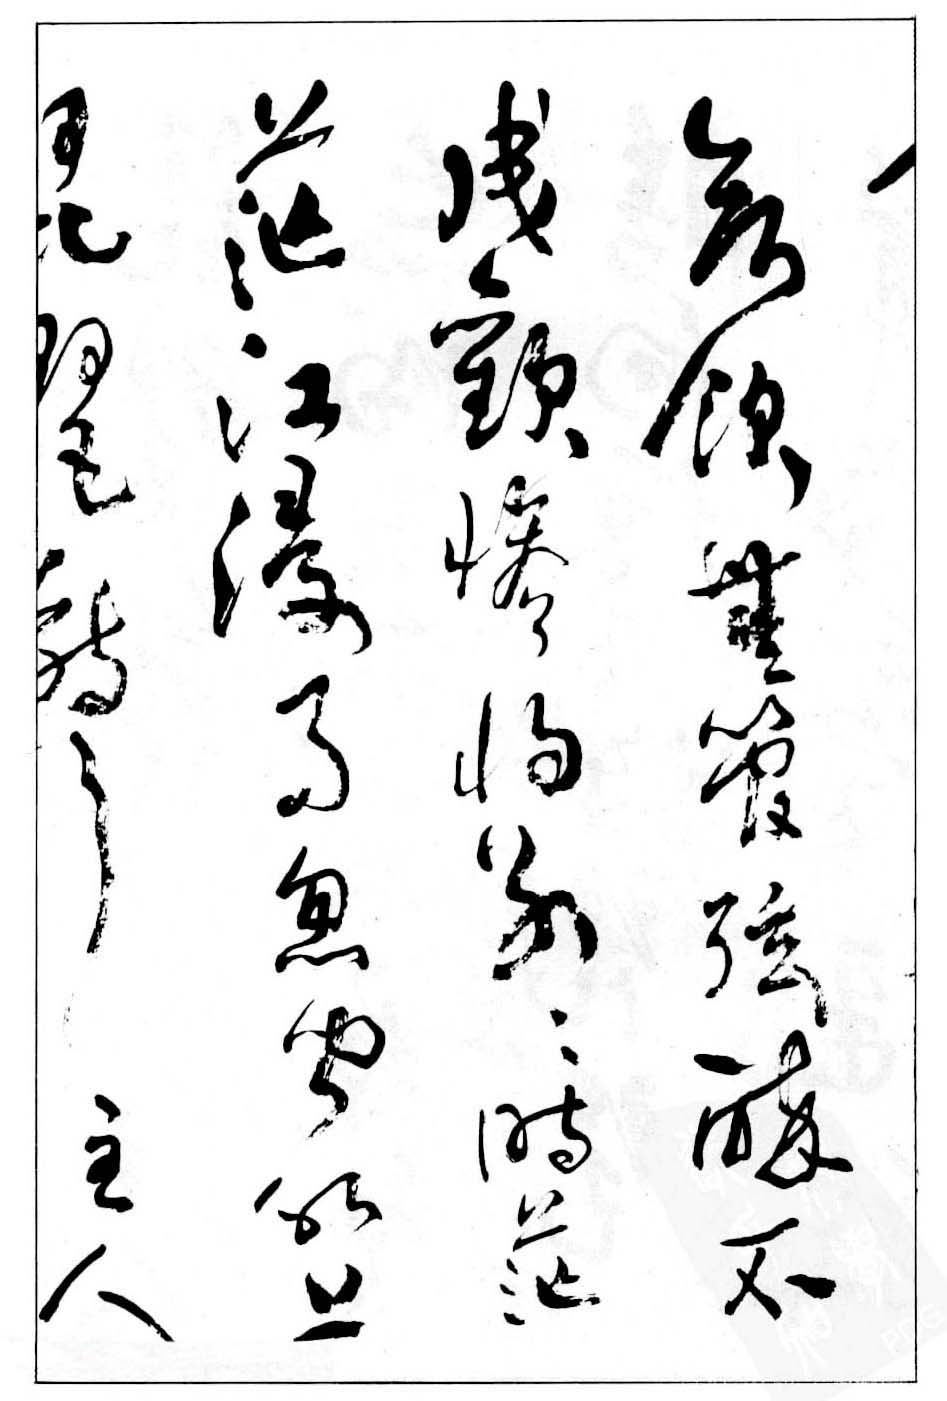 欲飲無管弦醉不
成歡慘將別〻時茫
茫江浸月忽聞水上
琵琶聲主人